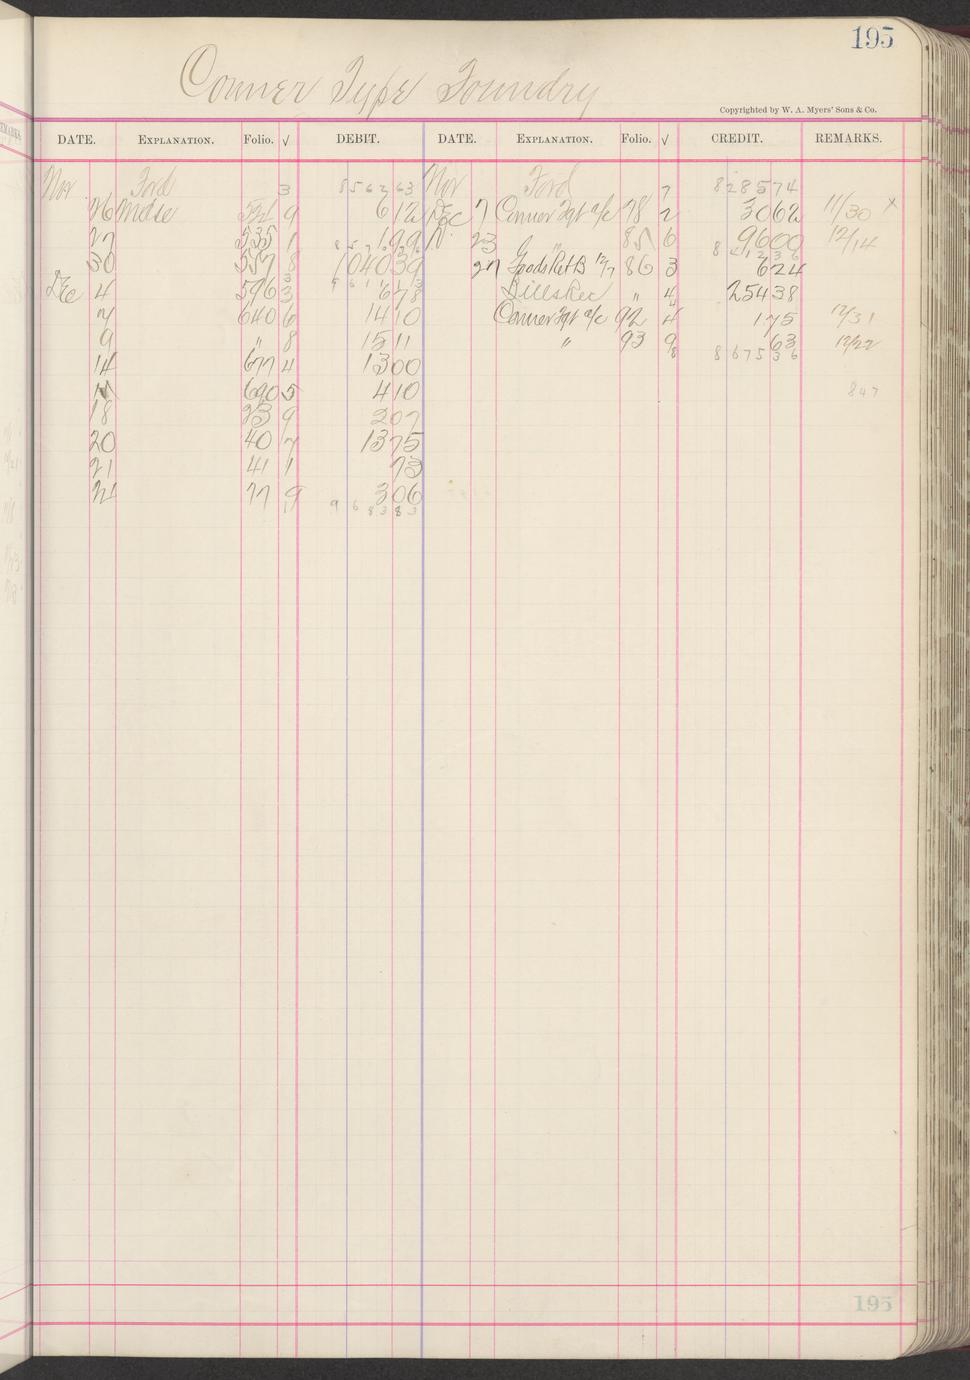 195
Conner Type Foundry
Copyrighted by W. A. Myers' Sons & Co.
DATE. EXPLANATION. Folio. √ DEBIT. DATE. EXPLANATION. Folio. √ CREDIT. REMARKS.
Nov Ford 3 8562 63 Nov Ford 7 8285 74
26 Mdse 521 9 6 12 Dec 7 Conner Fgt a/c 78 2 30 62 11/30 x
27 535 1 1 99 23 " 85 6 96 00 12/14
8412 36
30 557 8 1040 39 27 Goods Ret B 12/7 86 3 6 24
Dec 4 596 3 6 78 Bills Rec " 4 254 38
7 640 6 14 10 Conner Fgt a/c 92 4 1 75 12/31
9 " 8 15 11 " 93 9 63 12/22
8 8675 36
14 677 4 13 00
690 5 4 10 847
18 23 9 2 07
20 40 7 13 75
21 41 1 73
24 77 9 3 06
9683 83
195